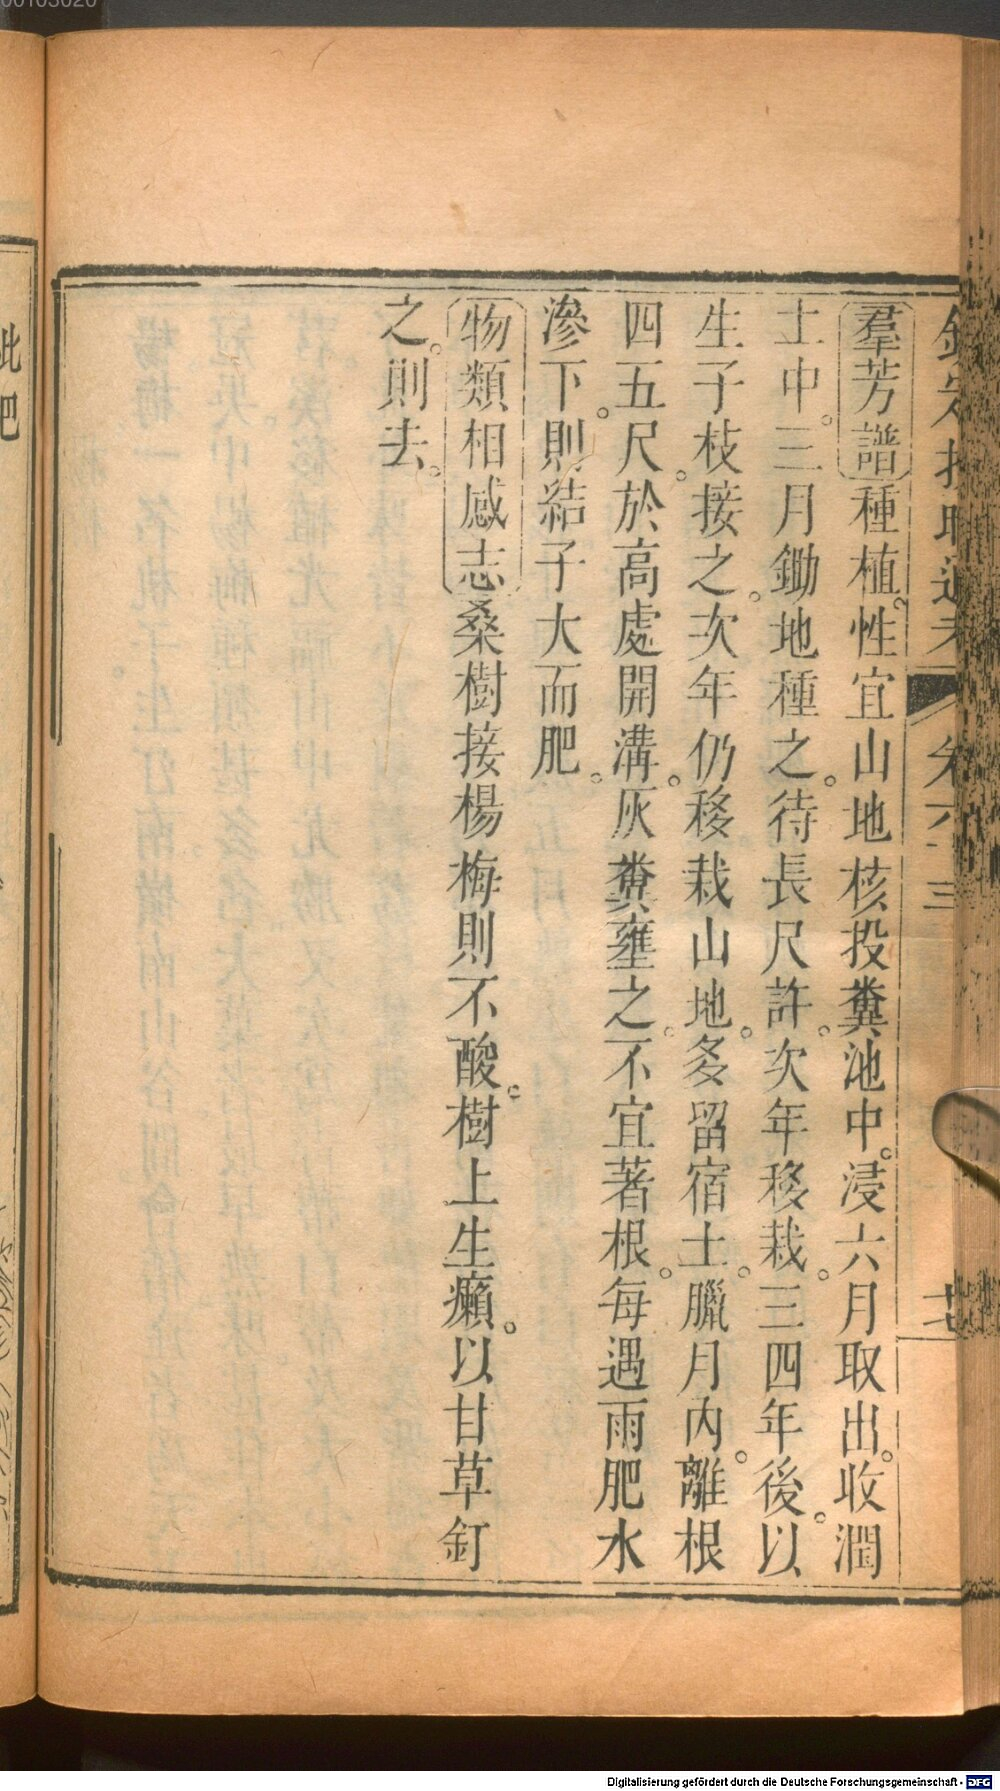 00103020
欽定授時通考
卷六十三
羣芳譜種植。性宜山地核投糞池中。浸六月取出。收潤
土中。三月鋤地種之。待長尺許。次年移栽。三四年後。以
生子枝接之。次年仍移栽山地。多留宿土。臘月內。離根
四五尺。於高處開溝。灰糞壅之。不宜著根。每遇雨肥水
滲下。則結子大而肥。
物類相感志桑樹接楊梅則不酸。樹上生癩。以甘草釘
之。則去。
枇杷
Digitalisierung gefördert durch die Deutsche Forschungsgemeinschaft - DFG